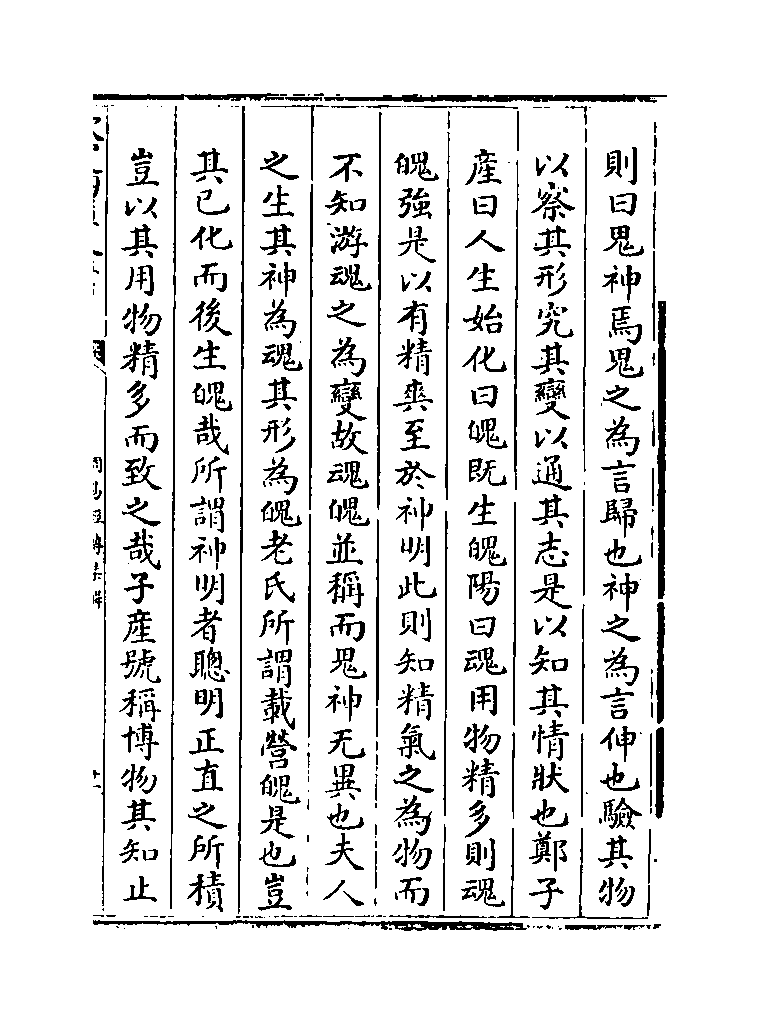 則曰鬼神焉鬼之為言歸也神之為言伸也驗其物
以察其形究其變以通其志是以知其情狀也鄭子
產曰人生始化曰魄既生魄陽曰魂用物精多則魂
魄強是以有精爽至於神明此則知精氣之為物而
不知游魂之為變故魂魄並稱而鬼神无異也夫人
之生其神為魂其形為魄老氏所謂載營魄是也豈
其已化而後生魄哉所謂神明者聰明正直之所積
豈以其用物精多而致之哉子產號稱博物其知止
周易經傳集解